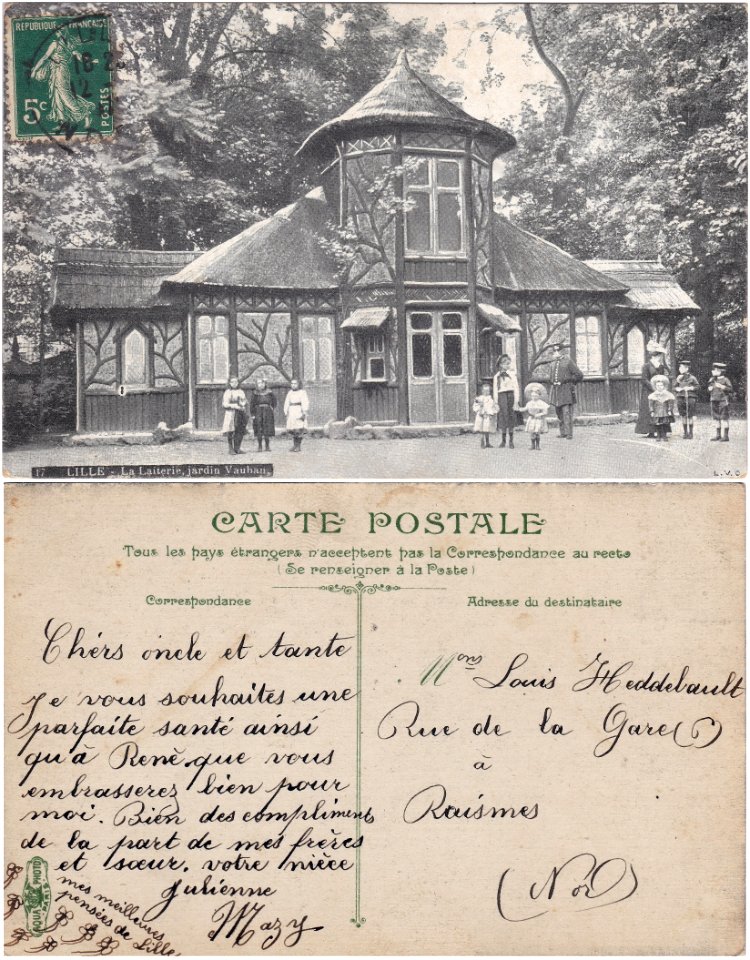 REPUBLIQUE FRANÇAISE
5c
POSTES
17 LILLE - La Laiterie, jardin Vauban.
L.V.C
CARTE POSTALE
Tous les pays étrangers n'acceptent pas la Correspondance au recto
(Se renseigner à la Poste)
Correspondance
Chérs oncle et tante
Je vous souhaites une
parfaite santé ainsi
qu'à Renè que vous
embrasserez bien pour
moi. Bien des compliments
de la part de mes frères
et sœur. votre nièce
Julienne
Mazy
mes meilleures
pensées de Lille
AQUA PHOTO
PARIS
Adresse du destinataire
Louis Heddebault
Rue de la Gare
à
Raismes
(Nord)